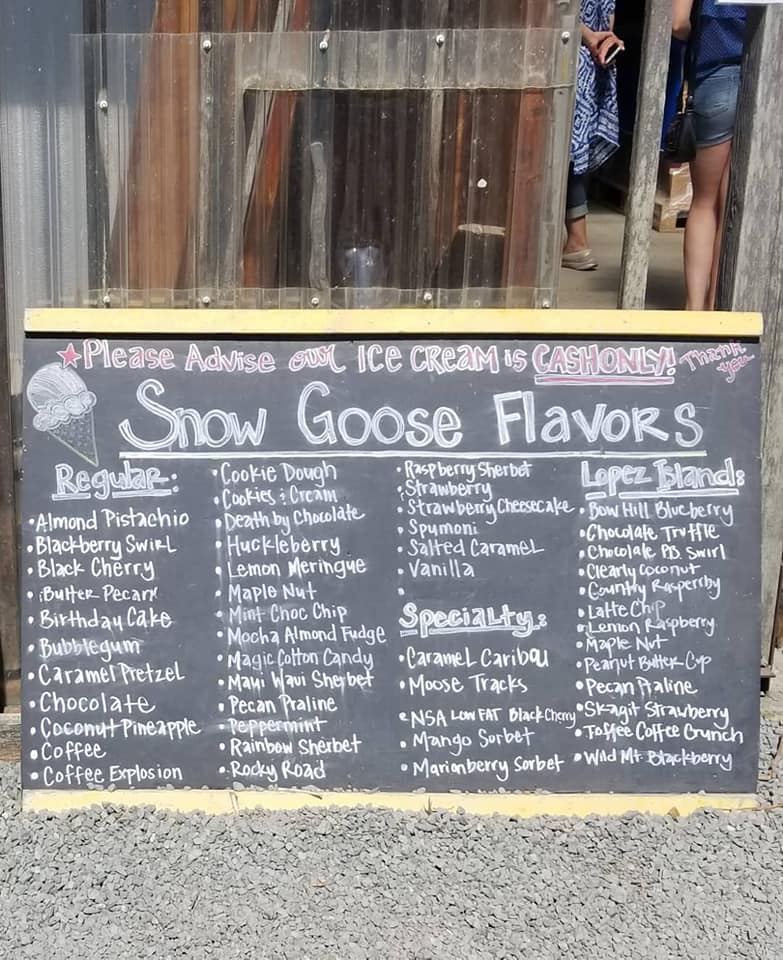 ★Please Advise our ICE CREAM is CASH ONLY! Thank you
Snow Goose Flavors
Regular:
• Almond Pistachio
• Blackberry Swirl
• Black Cherry
• Butter Pecan
• Birthday Cake
• Bubblegum
• Caramel Pretzel
• Chocolate
• Coconut Pineapple
• Coffee
• Coffee Explosion
• Cookie Dough
• Cookies & Cream
• Death by Chocolate
• Huckleberry
• Lemon Meringue
• Maple Nut
• Mint Choc Chip
• Mocha Almond Fudge
• Magic Cotton Candy
• Maui Waui Sherbet
• Pecan Praline
• Peppermint
• Rainbow Sherbet
• Rocky Road
• Raspberry Sherbet
• Strawberry
• Strawberry Cheesecake
• Spumoni
• Salted Caramel
• Vanilla
•
Specialty:
• Caramel Caribou
• Moose Tracks
• NSA LOW FAT Black Cherry
• Mango Sorbet
• Marionberry Sorbet
Lopez Island:
• Bow Hill Blueberry
• Chocolate Truffle
• Chocolate P.B. Swirl
• Clearly Coconut
• Country Rasperrby
• Latte Chip
• Lemon Raspberry
• Maple Nut
• Peanut Butter Cup
• Pecan Praline
• Skagit Strawberry
• Toffee Coffee Crunch
• Wild Mt. Blackberry